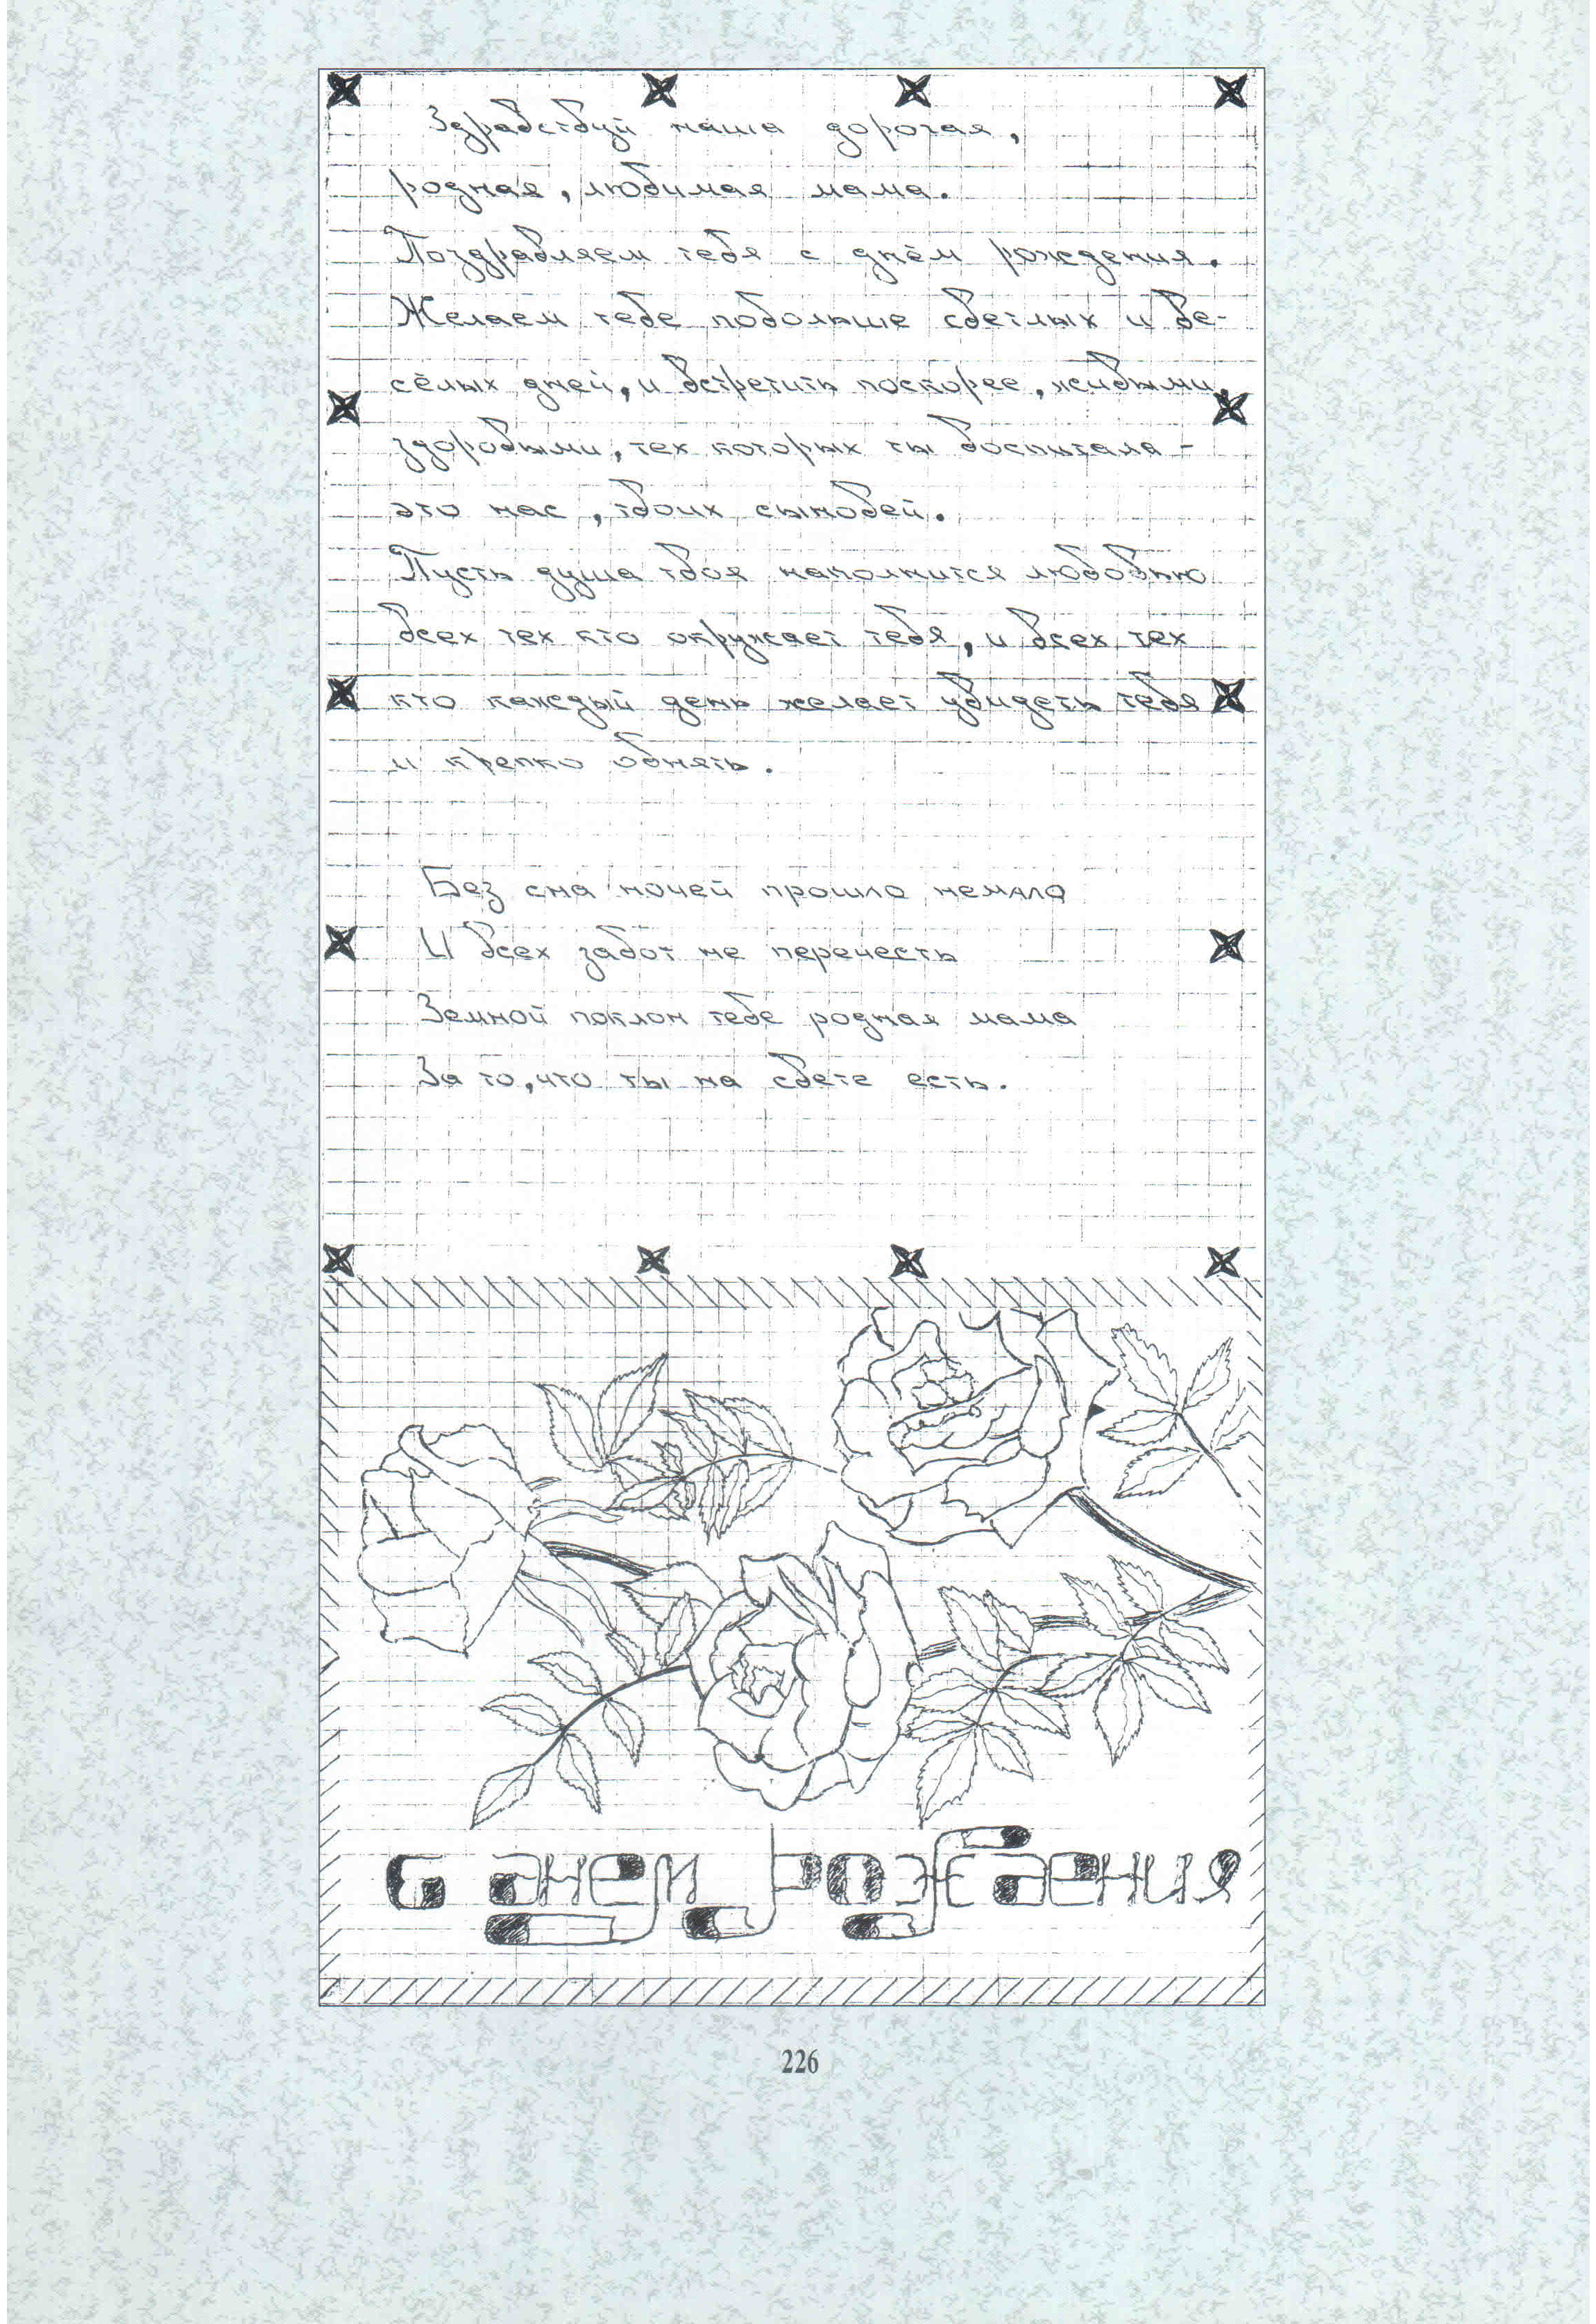 Здравствуй наша дорогая,
родная, любимая мама.
Поздравляем тебя с днём рождения.
Желаем тебе побольше светлых и ве-
сёлых дней, и встретить поскорее, живыми,
здоровыми, тех которых ты воспитала -
это нас, твоих сыновей.
Пусть душа твоя наполнится любовью
всех тех кто окружает тебя, и всех тех
кто каждый день желает увидеть тебя
и крепко обнять.
Без сна ночей прошло немало
И всех забот не перечесть
Земной поклон тебе родная мама
За то, что ты на свете есть.
С днем рождения
226